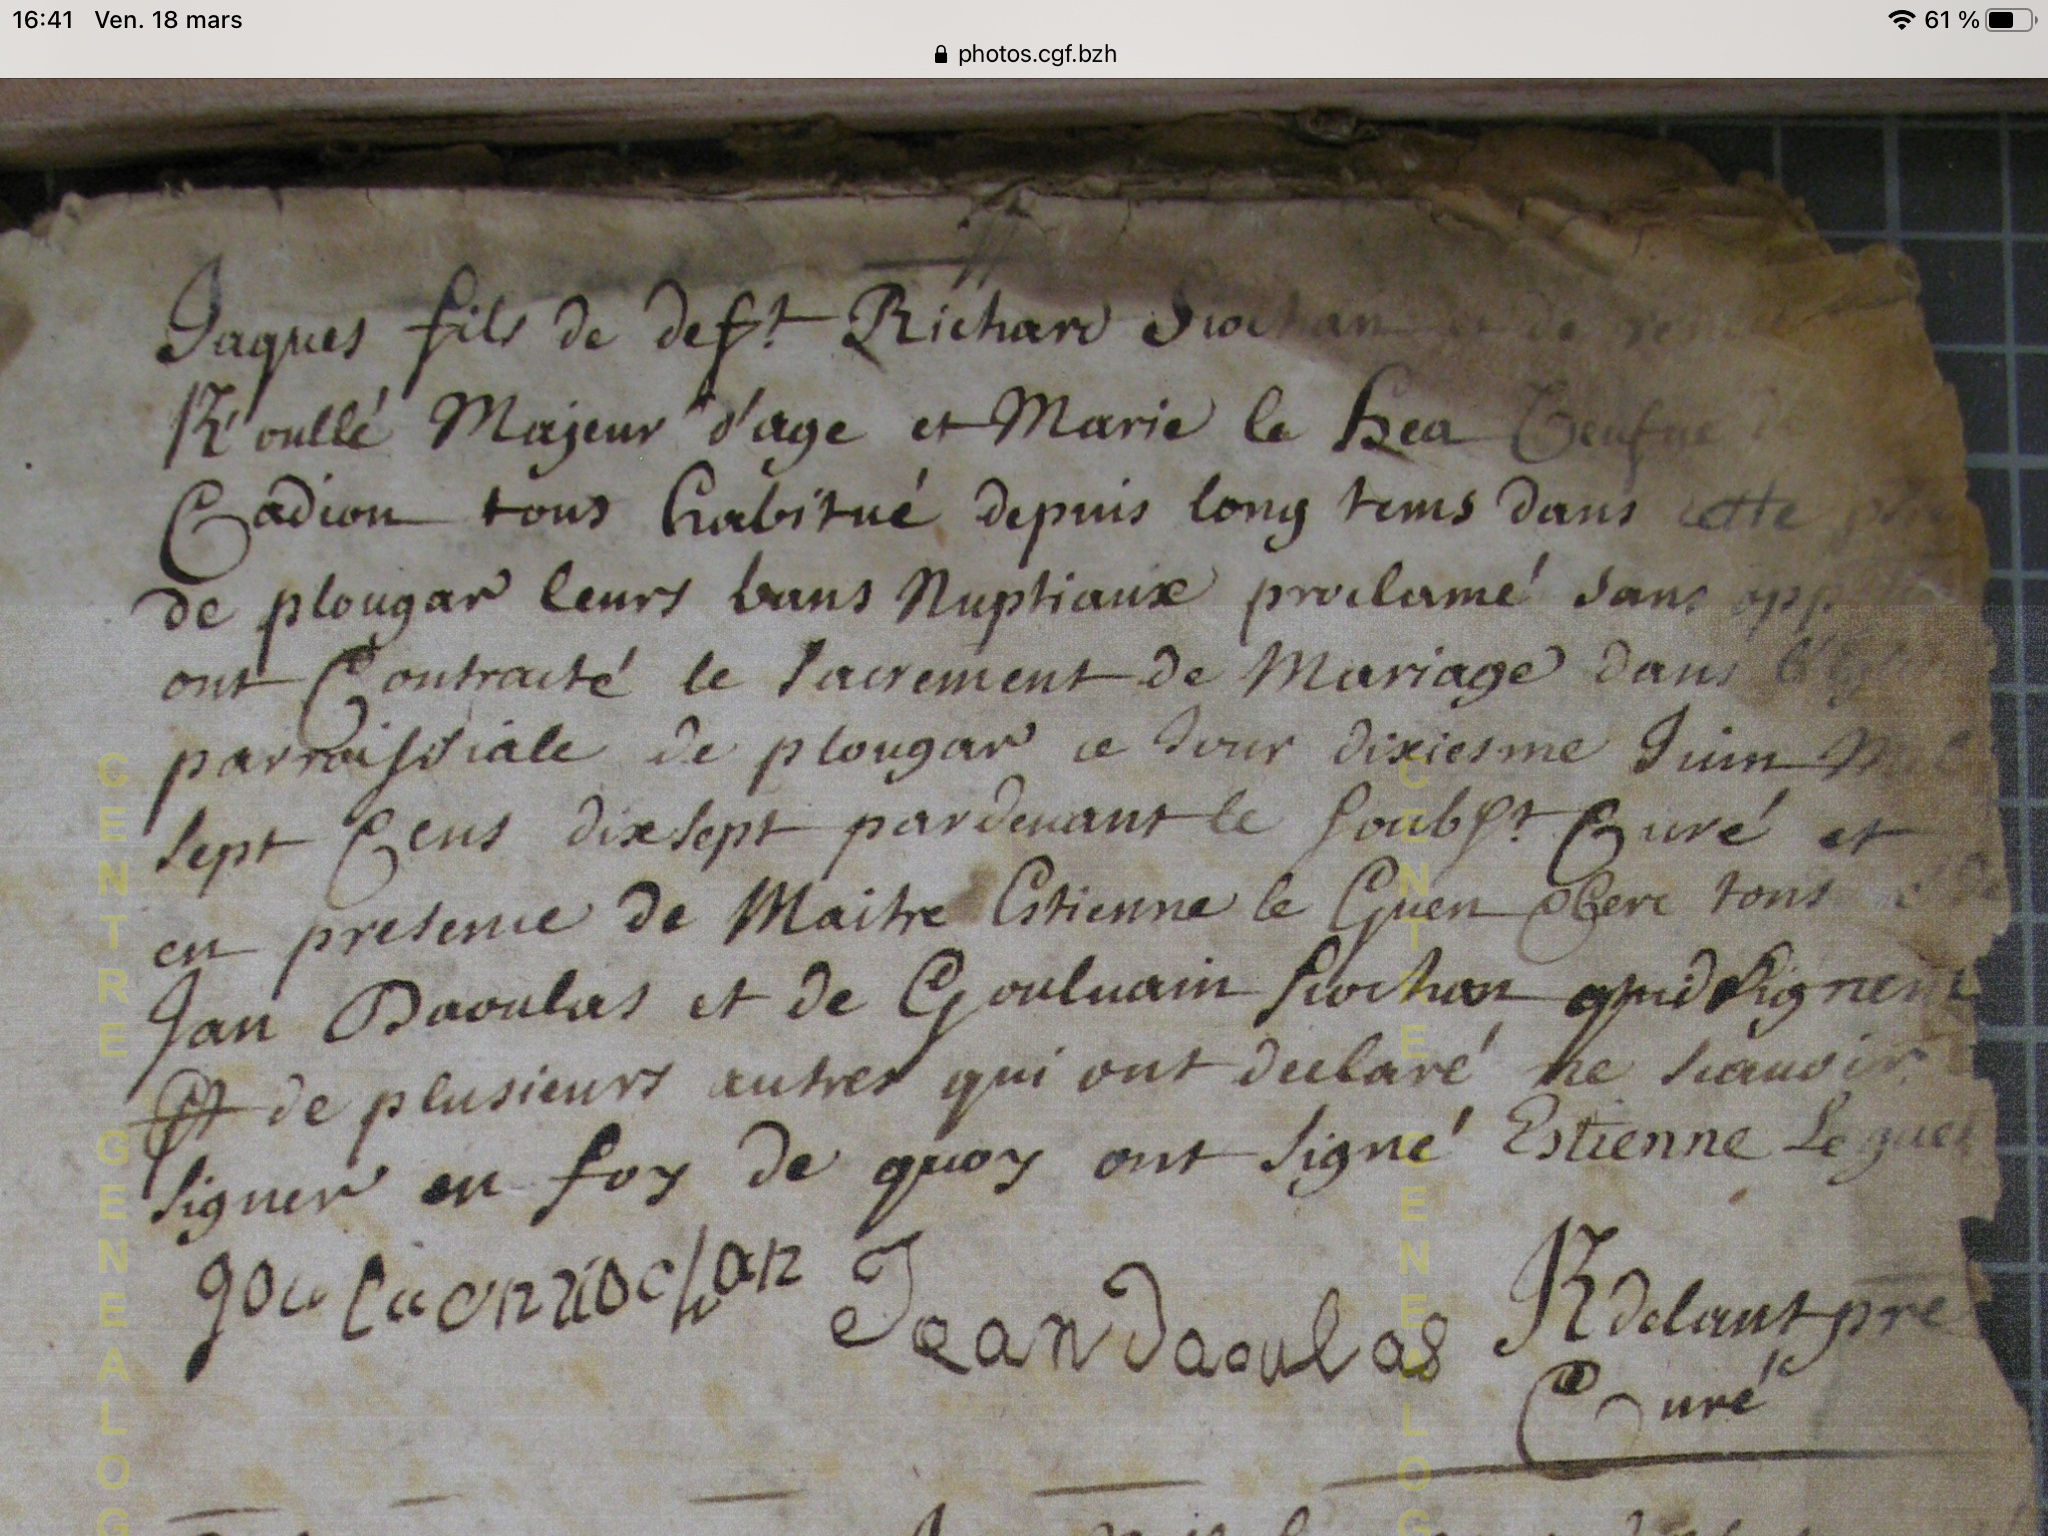 16:41 Ven. 18 mars 61 %
photos.cgf.bzh
Jaques fils de deft Richard Siochan et de
K'oullé Majeur d'age et Marie le hea
Cadiou tous habitué depuis long tems dans cette
de plougar leurs bans Nuptiaux proclamé sans
ont Contracté le sacrement de Mariage dans
parroissiale de plougar ce Jour dixiesme Juin
sept Cens dixsept pardevant le soubst Curé et
en presence de Maitre Estienne le Guen tous
Jan Daoulas et de Goulvain Siochan qui signent
Et de plusieurs autres qui ont declaré ne scavoir
signer en foy de quoy ont signé Estienne Le guen
Jean daoulas
Curé
CENTRE GENEALOG
CENTRE GENEALOG